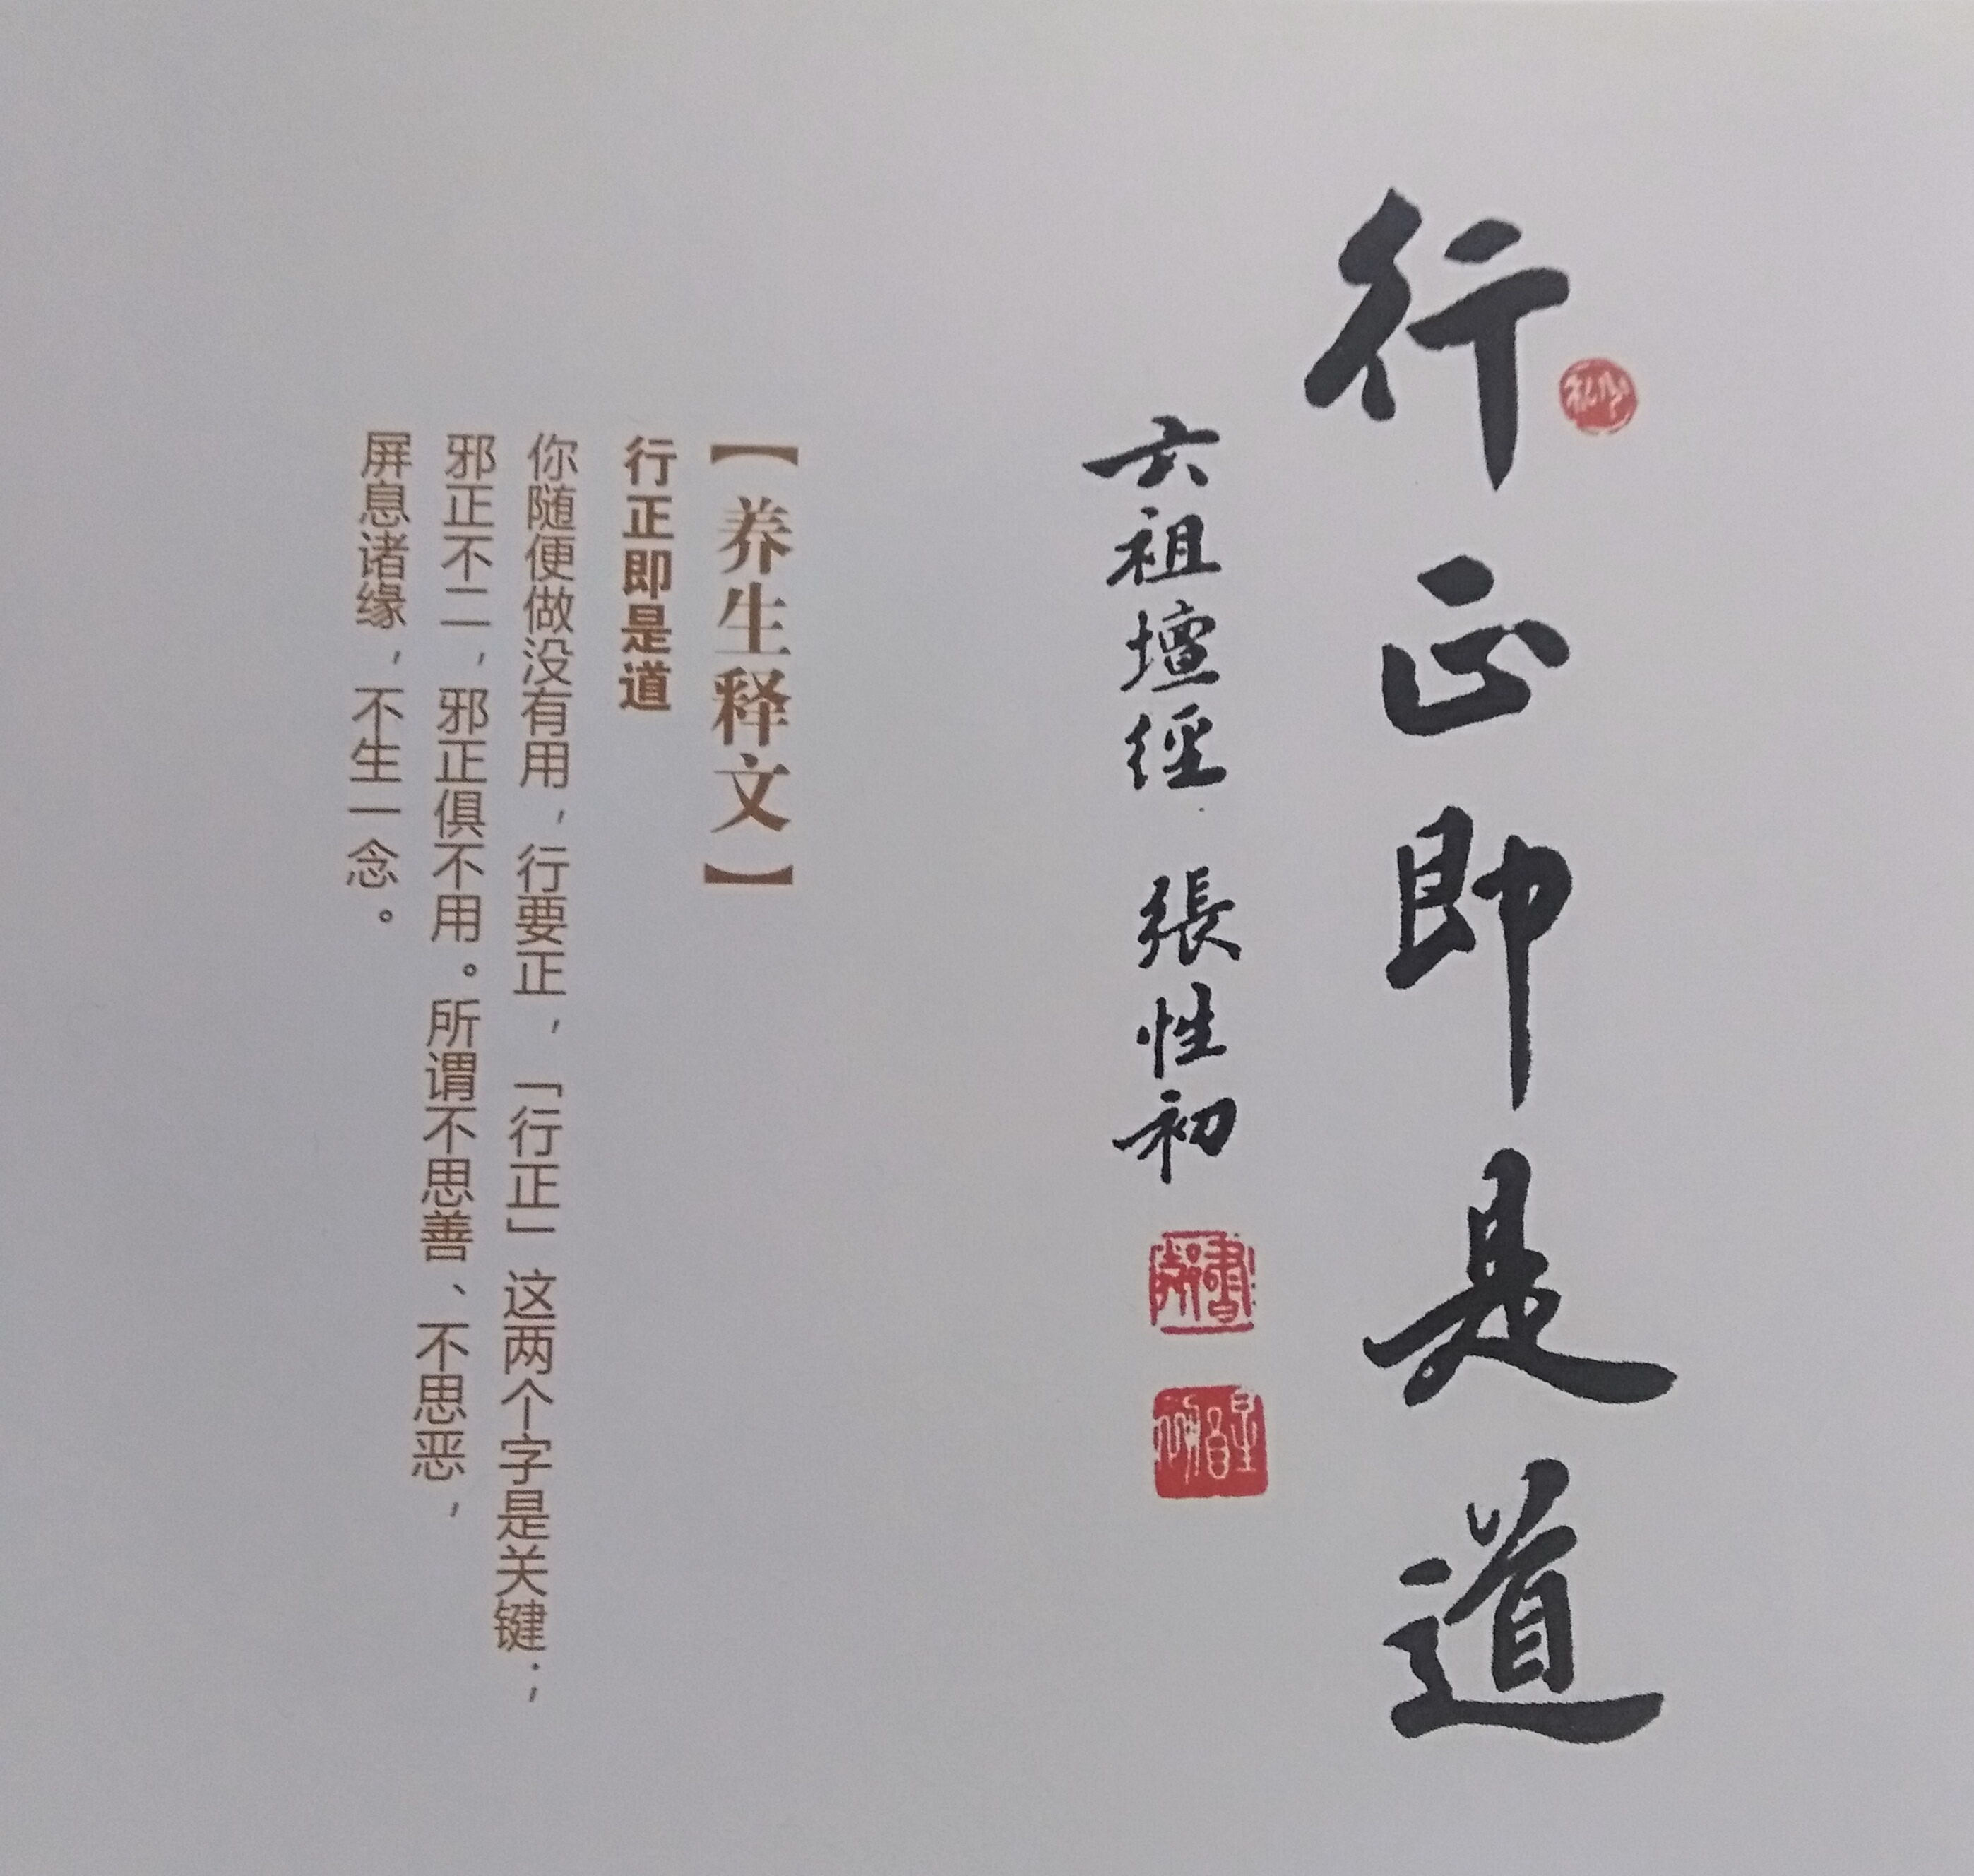 行正即是道
六祖壇經 張性初
【养生释文】
行正即是道
你随便做没有用，行要正，「行正」这两个字是关键；
邪正不二，邪正俱不用。所谓不思善、不思恶，
屏息诸缘，不生一念。